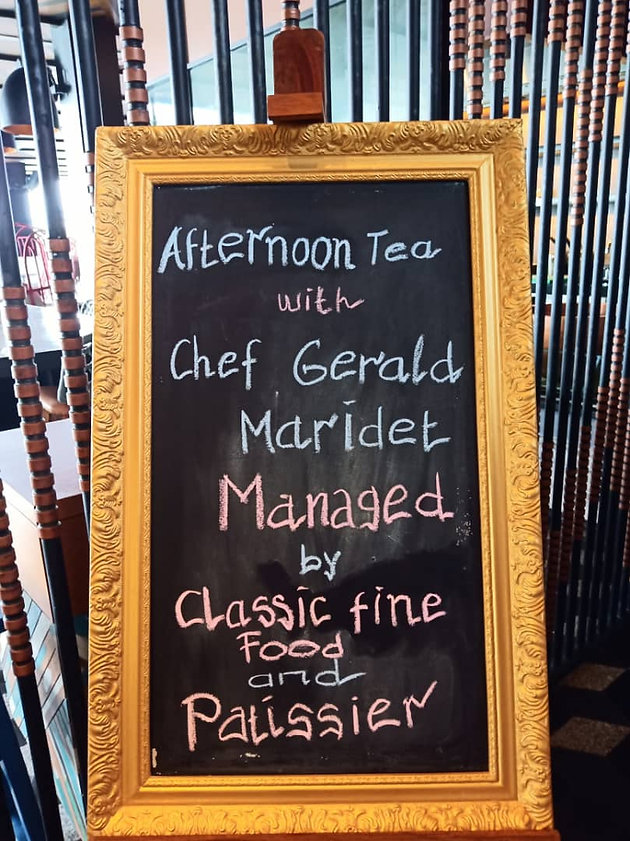 Afternoon Tea
with
Chef Gerald
Maridet
Managed
by
Classic fine
Food
and
Patissier